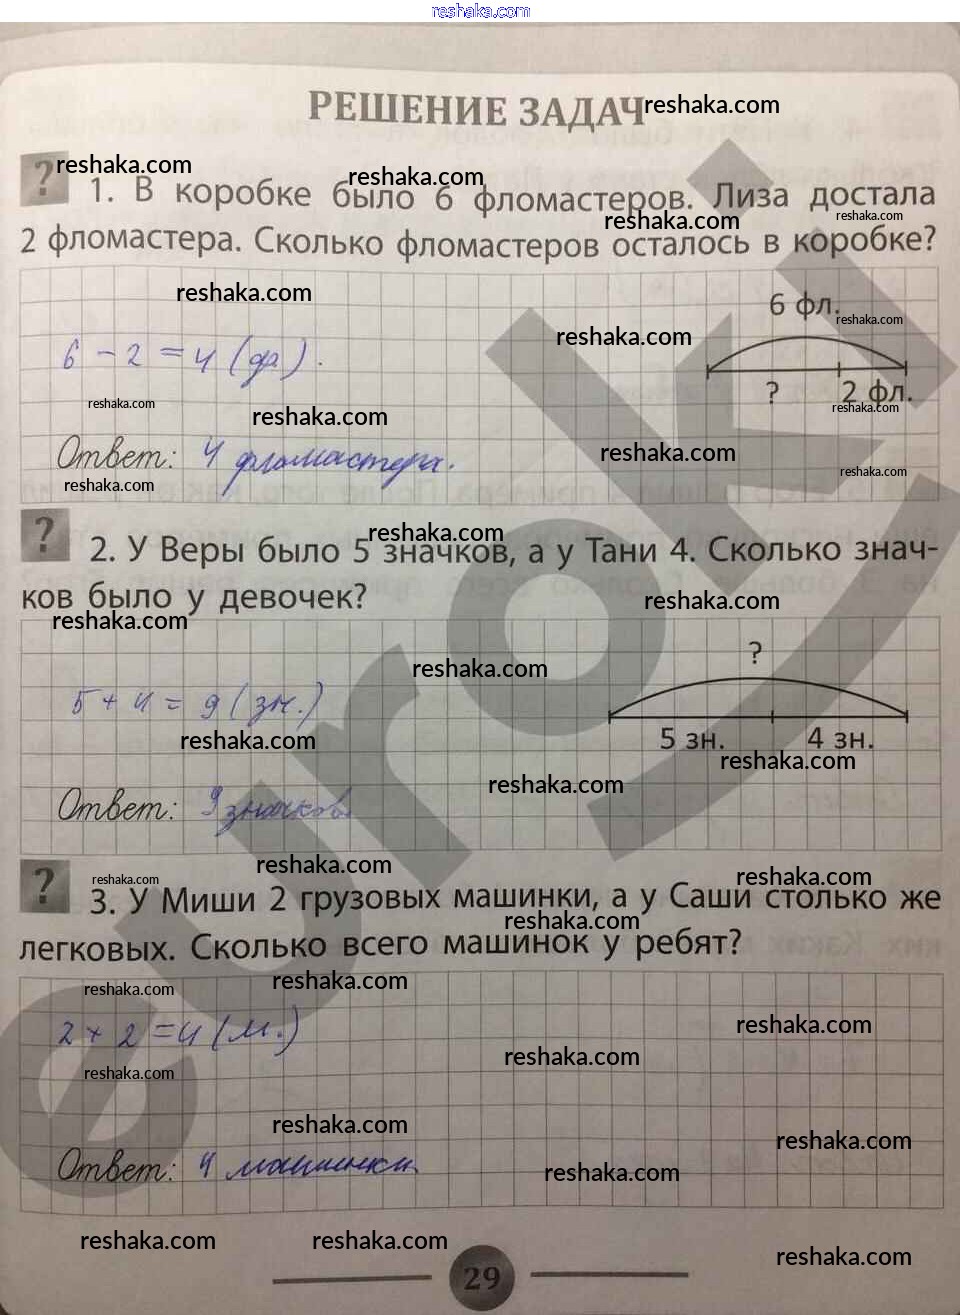 reshaka.com
РЕШЕНИЕ ЗАДАЧ reshaka.com
reshaka.com reshaka.com
? 1. В коробке было 6 фломастеров. Лиза достала
reshaka.com reshaka.com
2 фломастера. Сколько фломастеров осталось в коробке?
reshaka.com
6 фл.
reshaka.com
reshaka.com
6 - 2 = 4 (фл.).
? 2 фл.
reshaka.com
reshaka.com
reshaka.com
Ответ: 4 фломастера.
reshaka.com
reshaka.com
reshaka.com
reshaka.com
? 2. У Веры было 5 значков, а у Тани 4. Сколько знач-
ков было у девочек?
reshaka.com
reshaka.com
?
reshaka.com
5 + 4 = 9 (зн.)
5 зн. 4 зн.
reshaka.com
reshaka.com
reshaka.com
Ответ: 9 значков.
reshaka.com
reshaka.com
reshaka.com
? 3. У Миши 2 грузовых машинки, а у Саши столько же
reshaka.com
легковых. Сколько всего машинок у ребят?
reshaka.com
reshaka.com
2 + 2 = 4 (м.)
reshaka.com
reshaka.com
reshaka.com
reshaka.com
reshaka.com
Ответ: 4 машинки.
reshaka.com
reshaka.com reshaka.com
reshaka.com
29
euroki